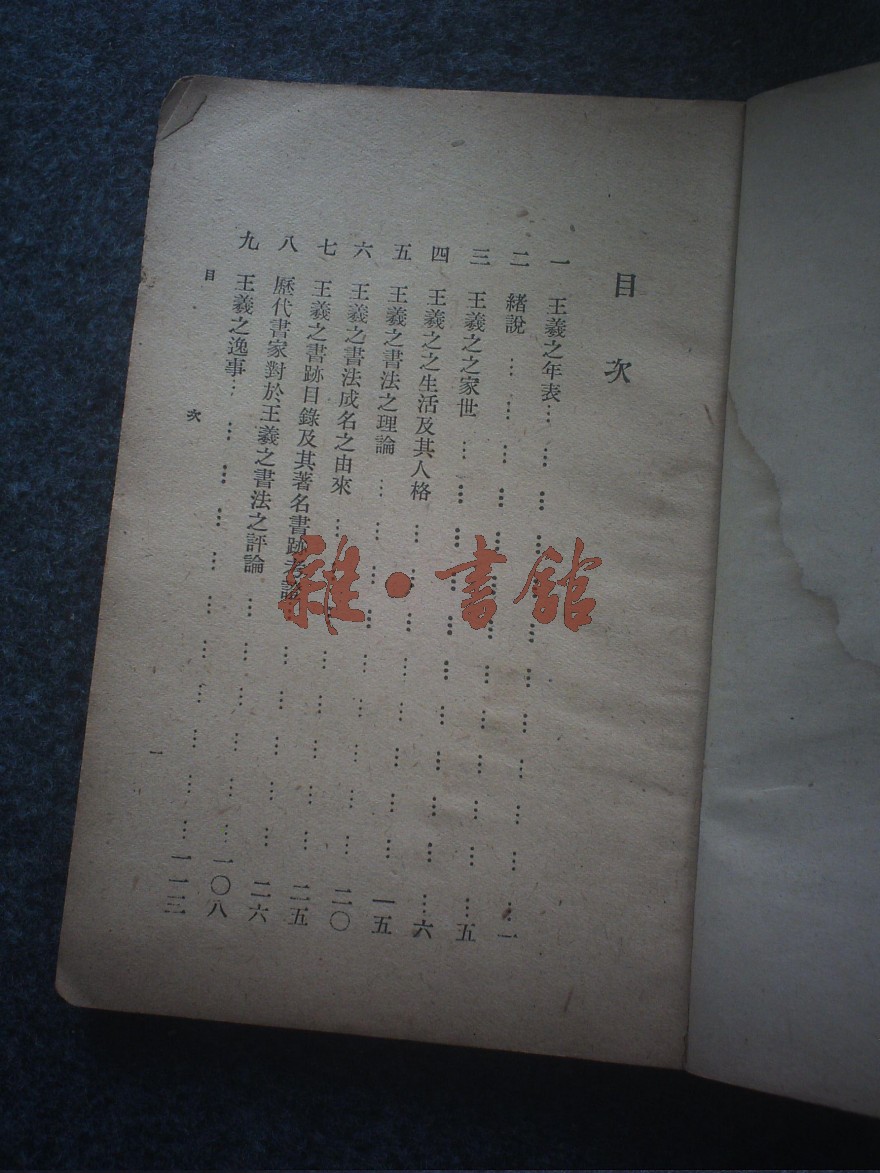 目次
一 王羲之年表…………一
二 緒說…………五
三 王羲之之家世…………六
四 王羲之之生活及其人格…………一五
五 王羲之書法之理論…………二〇
六 王羲之書法成名之由來…………二五
七 王羲之書跡目錄及其著名書跡考證…………二六
八 歷代書家對於王羲之書法之評論…………一〇八
九 王羲之逸事…………一一三
目次 一
雜·書館